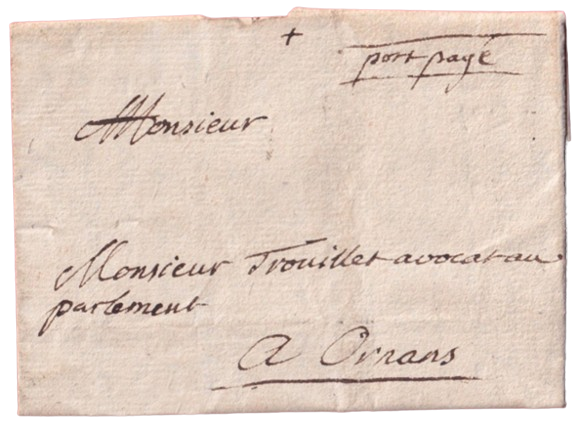 +
port payé
Monsieur
Monsieur Trouillet avocat au
parlement
A Ornans